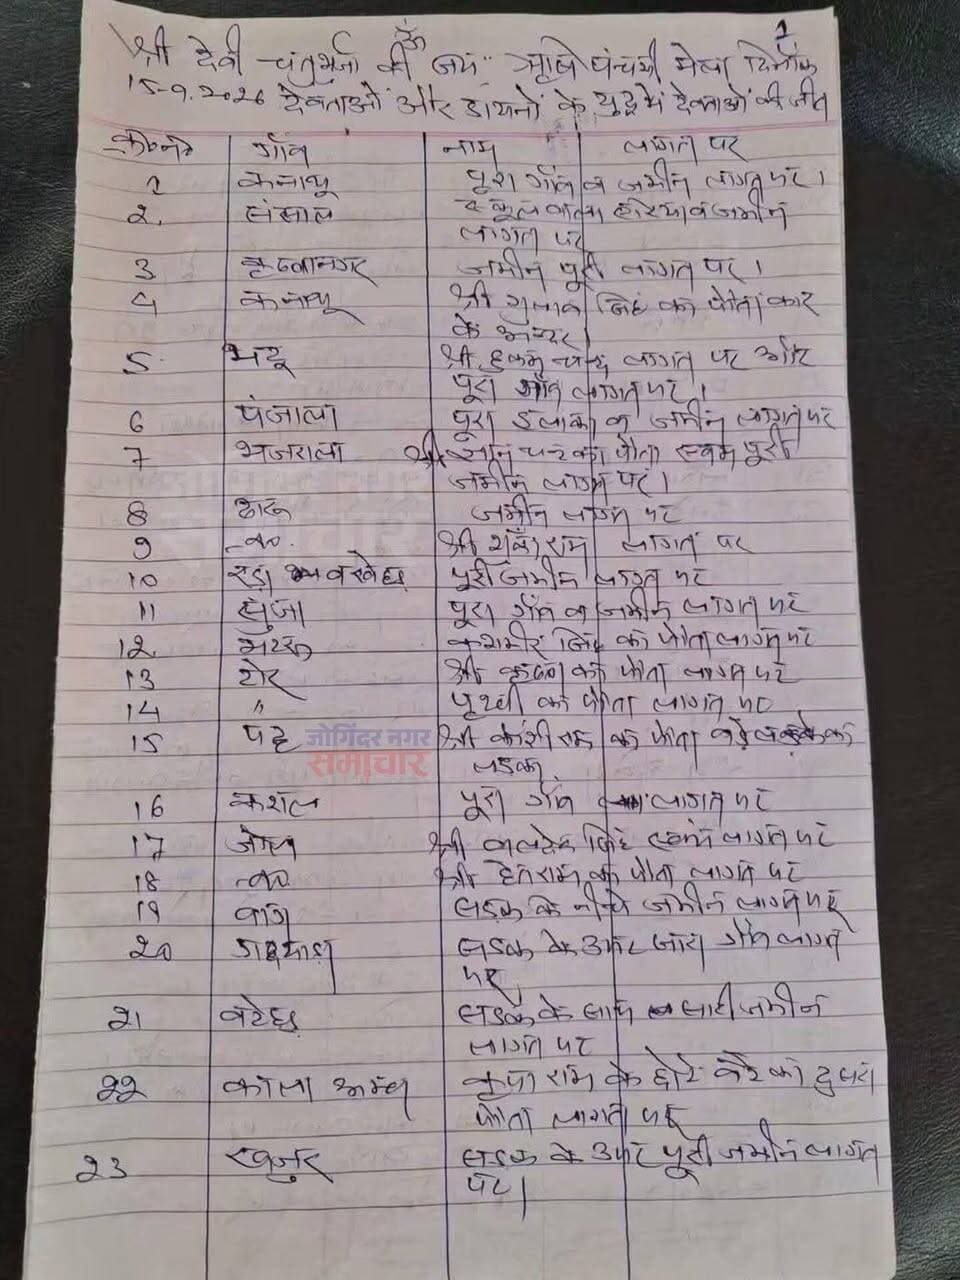 ॐ
1
श्री देवी चतुर्भुजा की जय ऋषि पंचमी मेला दिनांक
15-9.2026 देवताओं और डायनों के युद्ध में देवताओं की जीत
गाँव नाम लागत पर
1 कनाथू पूरा गाँव व जमीन लागत पर।
2. संसाल स्कूल वाला हरिया व जमीन
लागत पर
3 कृष्णानगर जमीन पूरी लागत पर।
4 कनाथू श्री गुलाब सिंह का पोता कार
के अन्दर
5. भट्टू श्री हुकम चन्द लागत पर और
पूरा गाँव लागत पर।
6 पंजाला पूरा इलाका व जमीन लागत पर
7 भजराला श्री ज्ञान चन्द का पोता पूरी
जमीन लागत पर।
8 जमीन लागत पर
9 श्री राम लागत पर
10 पूरी जमीन लागत पर
11 पूरा गाँव व जमीन लागत पर
12 कशमीर सिंह का पोता लागत पर
13 शेर श्री का पोता लागत पर
14 " पृथ्वी का पोता लागत पर
15 पट्ट श्री कांशी राम का पोता बड़े लड़के का
लड़का
जोगिंदर नगर
समाचार
16 पूरा गाँव लागत पर
17 श्री बलदेव सिंह लागत पर
18 श्री हेतराम का पोता लागत पर
19 बाग सड़क के नीचे जमीन लागत पर
20 सड़क के उपर सारा गाँव लागत
पर
21 सड़क के साथ सारी जमीन
लागत पर
22 काला अम्ब कृपा राम के छोटे बेटे का दुसरा
पोता लागत पर
23 खजुर सड़क के उपर पूरी जमीन लागत
पर।